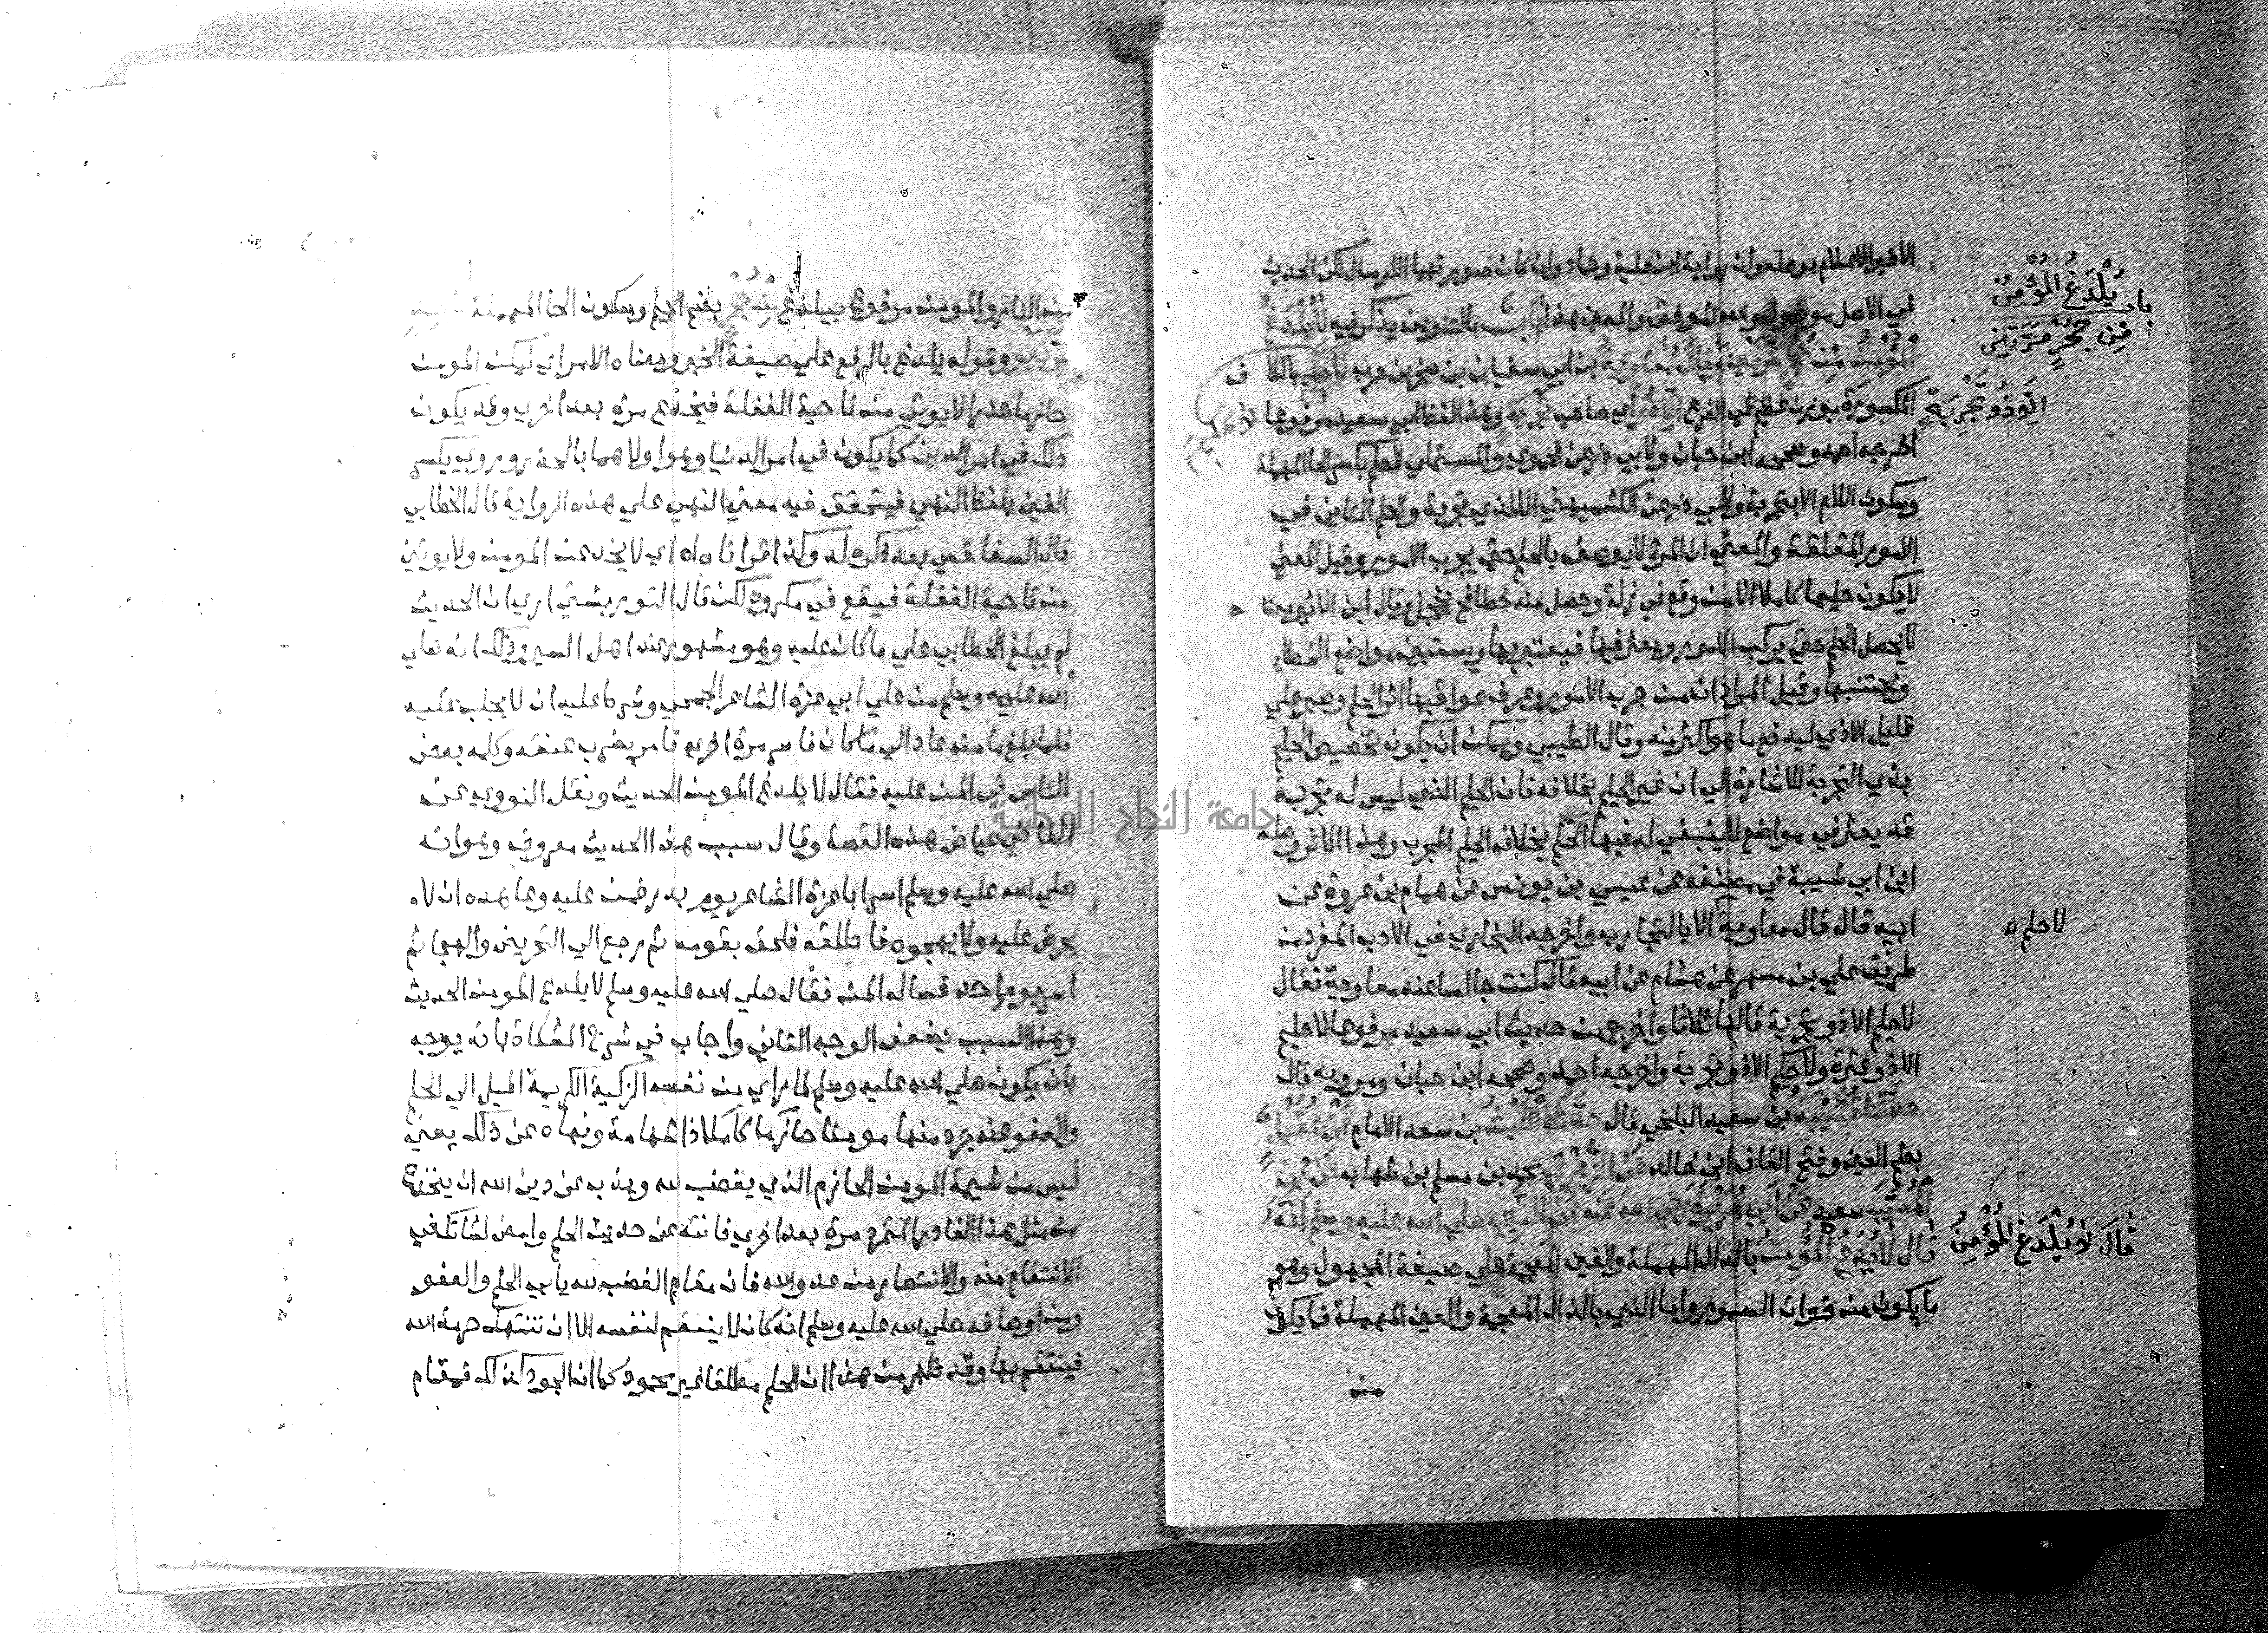 الاخير الاعلام بوصله وان رواية ابن علية وحماد وان كانت صورتهما الارسال لكن الحديث
في الاصل موصول والله الموفق والمعين هذا باب بالتنوين يذكر فيه لا يلدغ
المؤمن من جحر مرتين وقال معاوية بن ابي سفيان بن صخر بن حرب لا حكيم بالكاف
المكسورة بوزن عظيم في الفرع الا ذو اي صاحب تجربة وهذا لفظ ابي سعيد مرفوعا
اخرجه احمد وصححه ابن حبان ولابي ذر عن الحموي والمستملي لا حلم بكسر الحا المهملة
وسكون اللام الا بتجربة ولابي ذر عن الكشميهني الا لذي تجربة والحلم التاني في
الامور المقلقة والمعني ان المرء لا يوصف بالحلم حتي يجرب الامور وقيل المعني
لا يكون حليما كاملا الا من وقع في زلة وحصل منه خطا فح يخجل وقال ابن الاثير معناه
لا يحصل الحلم حتي يركب الامور ويعثر فيها فيعتبر بها ويستبين مواضع الخطاء
ويجتنبها وقيل المراد ان من جرب الامور وعرف عواقبها اثر الحلم وصبر علي
قليل الاذي ليدفع ما هو اكثر منه وقال الطيبي ويمكن ان يكون تخصيص الحليم
بذي التجربة للاشارة الي ان غير الحليم بخلافه فان الحليم الذي ليس له تجربة
قد يعثر في مواضع لا ينبغي له فيها الحلم بخلاف الحليم المجرب وهذا الاثر وصله
ابن ابي شيبة في مصنفه عن عيسي بن يونس عن هشام بن عروة عن
ابيه قال قال معاوية الا بالتجارب واخرجه البخاري في الادب المفرد من
طريق علي بن مسهر عن هشام عن ابيه قال كنت جالسا عند معاوية فقال
لا حليم الا ذو تجربة قالها ثلاثا واخرج من حديث ابي سعيد مرفوعا لا حليم
الا ذو عثرة ولا حكيم الا ذو تجربة واخرجه احمد وصححه ابن حبان وبه قال
حدثنا قتيبة بن سعيد البلخي قال حدثنا الليث بن سعد الامام عن عقيل
بضم العين وفتح القاف ابن خالد عن الزهري محمد بن مسلم بن شهاب عن ابن
المسيب سعيد عن ابي هريرة رضي الله عنه عن النبي صلي الله عليه وسلم انه
قال لا يلدغ المؤمن بالدال المهملة والغين المعجمة علي صيغة المجهول وهو
ما يكون من ذوات السموم واما الذي بالذال المعجمة والعين المهملة فما يكون
من
باب لا يلدغ المؤمن
من جحر مرتين
الا ذو تجربة
لا حكيم
لا حلم
قال لا يلدغ المؤمن
من النار والمومن مرفوع بيلدغ من جحر بضم الجيم وسكون الحا المهملة
مرتين وقوله يلدغ بالرفع علي صيغة الخبر ومعناه الامر اي ليكن المومن
حازما حذرا لا يوتي من ناحية الغفلة فيخدع مرة بعد اخري وقد يكون
ذلك في امر الدين كما يكون في امر الدنيا وهو اولاهما بالحذر وروي بكسر
الغين بلفظ النهي فيتحقق فيه معني النهي علي هذه الرواية قاله الخطابي
قال السفاقسي بعد ذكره له وكذا قراناه اي لا يخدعن المومن ولا يوتين
من ناحية الغفلة فيقع في مكروه لكن قال التوربشتي اري ان الحديث
لم يبلغ الخطابي علي ما كان عليه وهو مشهور عند اهل السير وذلك انه صلي
الله عليه وسلم من علي ابي عزة الشاعر الجمحي وشرط عليه ان لا يجلب عليه
فلما بلغ مامنه عاد الي ما كان فاسر مرة اخري فامر بضرب عنقه وكلمه بعض
الناس في المن عليه فقال لا يلدغ المومن الحديث ونقل النووي عن
القاضي عياض هذه القصة وقال سبب هذا الحديث معروف وهو انه
صلي الله عليه وسلم اسر ابا عزة الشاعر يوم بدر فمن عليه وعاهده ان لا
يحرض عليه ولا يهجوه فاطلقه فلحق بقومه ثم رجع الي التحريض والهجا ثم
اسر يوم احد فساله المن فقال صلي الله عليه وسلم لا يلدغ المومن الحديث
وهذا السبب يضعف الوجه الثاني واجاب في شرح المشكاة بانه يوجه
بان يكون صلي الله عليه وسلم لما راي من نفسه الزكية الكريمة الميل الي الحلم
والعفو عنه جرد منها مومنا حازما كاملا ذا شهامة ونهاه عن ذلك يعني
ليس من شيمة المومن الحازم الذي يغضب لله ويذب عن دين الله ان ينخدع
من مثل هذا الغادر المتمرد مرة بعد اخري فانته عن حديث الحلم وامض لشانك في
الانتقام منه والانتصار من عدو الله فان مقام الغضب لله يابي الحلم والعفو
ومن اوصافه صلي الله عليه وسلم انه كان لا ينتقم لنفسه الا ان تنتهك حرمة الله
فينتقم بها وقد ظهر من هذا ان الحلم مطلقا غير محمود كما ان الجود كذلك فمقام
جامعة النجاح الوطنية